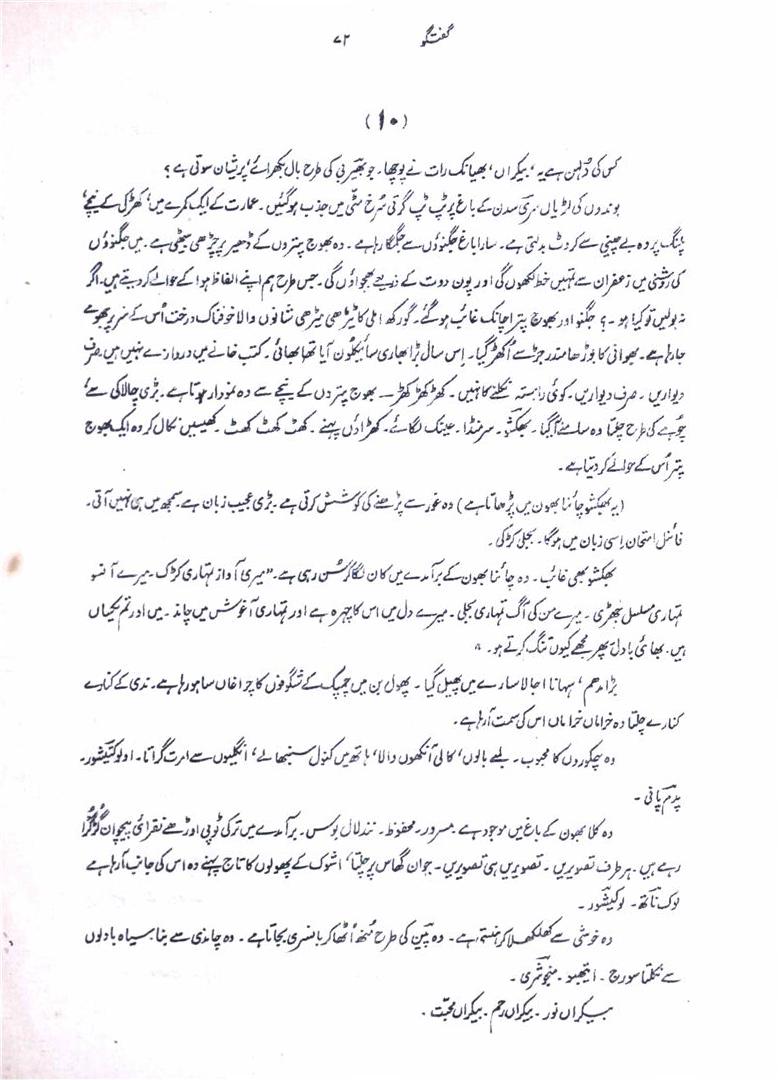 گفتگو ۷۲
(۱۰)
کس کی دُلہن ہے یہ ‘بیکراں’ بھیانک رات نے پوچھا۔ جو بھیَربی کی طرح بال بکھرائے’ پریشان سوتی ہے؟
بوندوں کی لڑیاں سرَی سدن کے باغ پر ٹپ ٹپ گرتی سُرخ مٹی میں جذب ہو گئیں۔ عمارت کے ایک کمرے میں’ کھڑکی کے نیچے’
پلنگ پر وہ بے چینی سے کروٹ بدلتی ہے۔ سارا باغ جگنوؤں سے جگمگا رہا ہے۔ وہ بھوج پتروں کے ڈھیر پر چڑھی بیٹھی ہے۔ میں جگنوؤں
کی روشنی میں زعفران سے تمہیں خط لکھوں گی اور پون دوت کے ذریعے بھجواؤں گی۔ جس طرح ہم اپنے الفاظ ہوا کے حوالے کر دیتے ہیں۔ اگر
نہ بولیں تو کیا ہو۔؟ جگنو اور بھوج پتر اچانک غائب ہو گئے۔ گورکھ املی کا ٹیڑھی میڑھی شانوں والا خوفناک درخت اُس کے سر پر جھومے
جا رہا ہے۔ بھوانی کا بوڑھا مندر جڑ سے اُکھڑ گیا۔ اِس سال بڑا بھاری سائیکلون آیا تھا بھائی۔ کتب خانے میں دروازے نہیں ہیں۔ صرف
دیواریں۔ صرف دیواریں۔ کوئی راستہ نکلنے کا نہیں۔ کھڑ کھڑ کھڑ— بھوج پتروں کے نیچے سے وہ نمودار ہوتا ہے۔ بڑی چالاکی سے’
چوہے کی طرح چلتا وہ سامنے آ گیا۔ بھکشو۔ سر منڈا۔ عینک لگائے۔ کھڑاؤں پہنے۔ کھٹ کھٹ کھٹ۔ کھیسیں نکال کر وہ ایک بھوج
پتر اُس کے حوالے کر دیتا ہے۔
(یہ بھکشو چائنا بھون میں پڑھاتا ہے) وہ غور سے پڑھنے کی کوشش کرتی ہے۔ بڑی عجیب زبان ہے سمجھ میں ہی نہیں آتی۔
فائنل امتحان اِسی زبان میں ہوگا۔ بجلی کڑکی۔
بھکشو بھی غائب۔ وہ چائنا بھون کے برآمدے میں کان لگا کر سُن رہی ہے۔ “میری آواز تمہاری کڑک۔ میرے آنسو
تمہاری مسلسل جھڑی۔ میرے من کی آگ تمہاری بجلی۔ میرے دل میں اس کا چہرہ ہے اور تمہاری آغوش میں چاند۔ میں اور تم یکساں
ہیں۔ بھائی بادل پھر مجھے کیوں تنگ کرتے ہو۔”
بڑا مدھم’ سہانا اجالا سارے میں پھیل گیا۔ پھول بن میں چمپک کے شگوفوں کا چراغاں سا ہو رہا ہے۔ ندی کے کنارے
کنارے چلتا وہ خراماں خراماں اس کی سمت آ رہا ہے۔
وہ چکوروں کا محبوب۔ لمبے بالوں’ کالی آنکھوں والا’ ہاتھ میں کنول سنبھالے’ انگلیوں سے امرت گراتا۔ اولوکتیشور۔
پدم پانی۔
وہ کلا بھون کے باغ میں موجود ہے۔ مسرور۔ محفوظ۔ نند لال بوس۔ برآمدے میں ترکی ٹوپی اوڑھے نقرئی پیچوان گُڑگُڑا
رہے ہیں۔ ہر طرف تصویریں۔ تصویریں ہی تصویریں۔ جوان گھاس پر چلتا’ اشوک کے پھولوں کا تاج پہنے وہ اس کی جانب آ رہا ہے
لوک ناتھ۔ لوکیشور۔
وہ خوشی سے کھلکھلا کر ہنستی ہے۔ وہ پَین کی طرح مُنھ اُٹھا کر بانسری بجاتا ہے۔ وہ چاندی سے بنا سیاہ بادلوں
سے نکلتا سورج۔ امیتبھو۔ منجوشری۔
بیکراں نور۔ بیکراں رحم۔ بیکراں محبّت۔